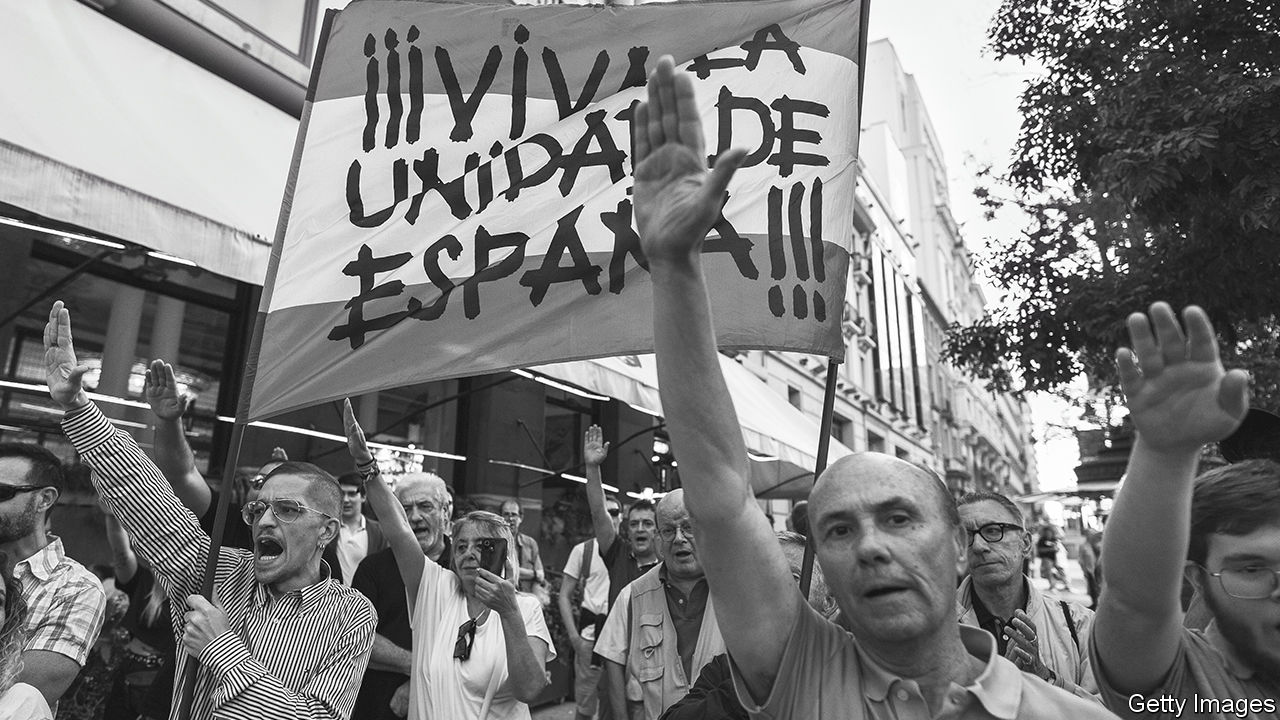 ¡¡¡ViVA LA
UNiDAD DE
ESPAÑA!!!
Getty Images